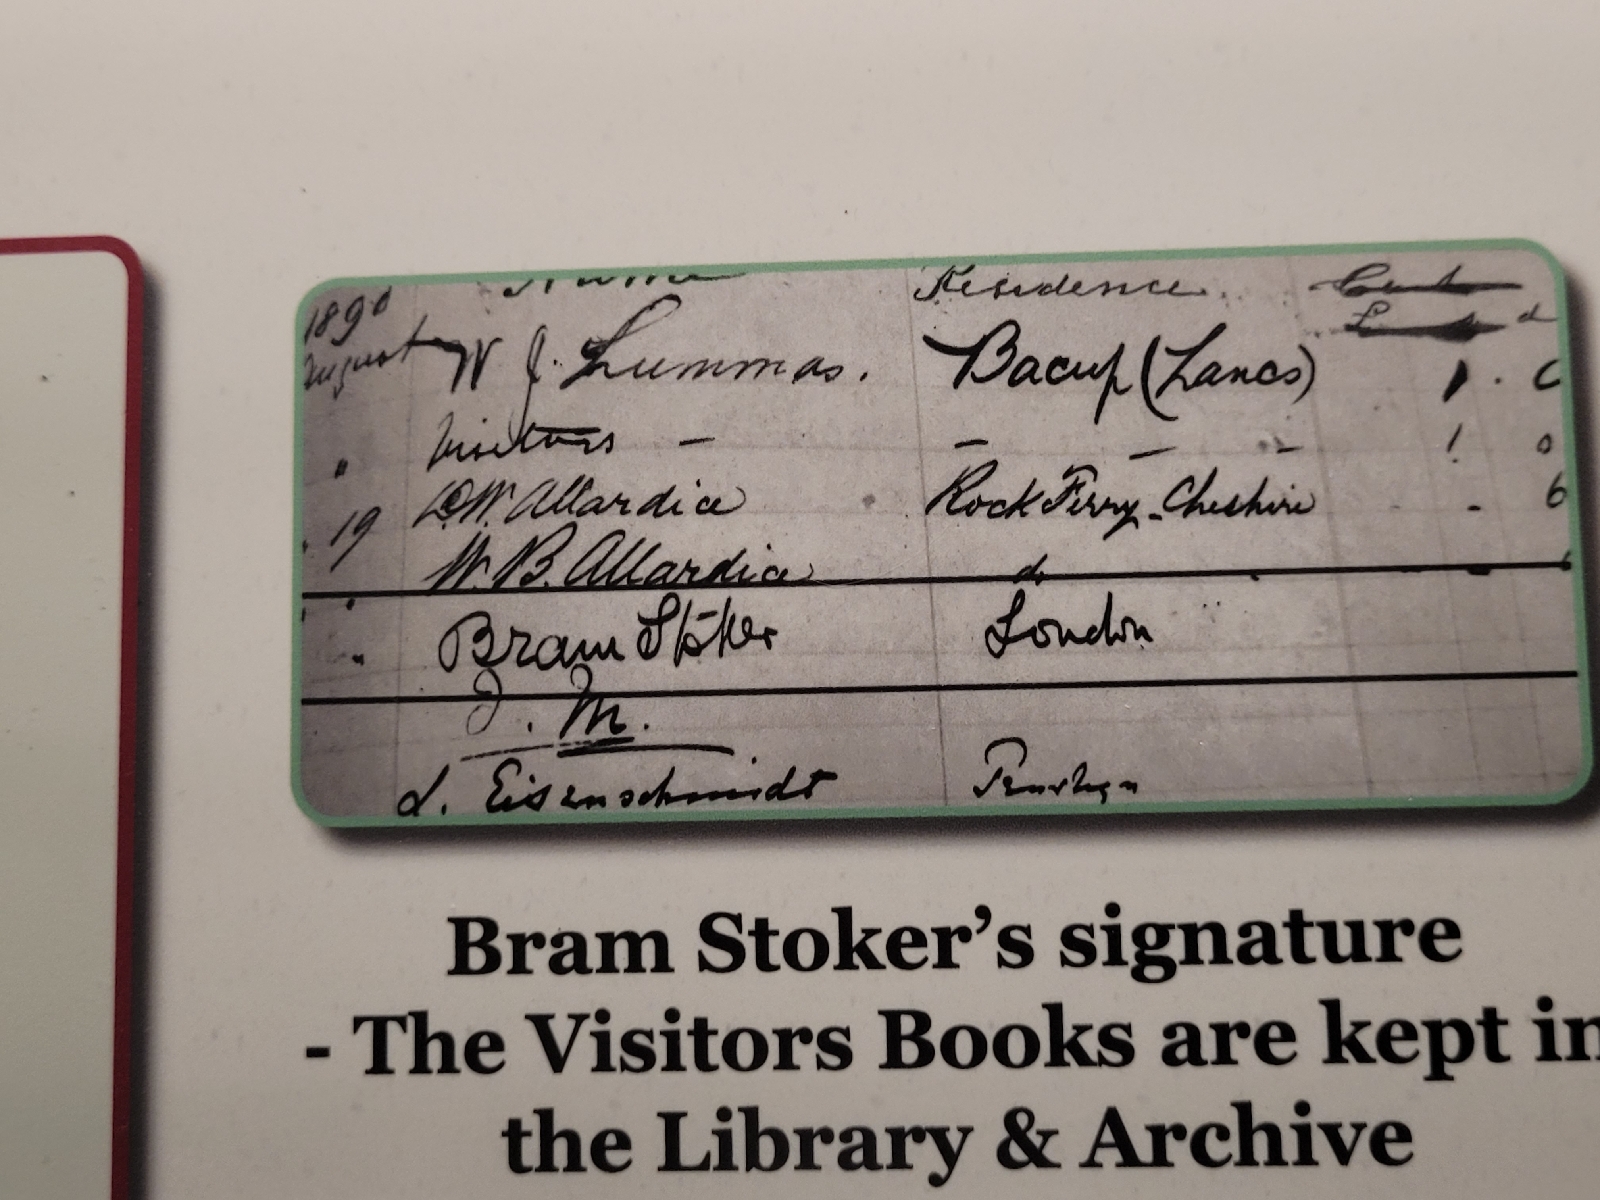 Name Residence
1890
August W J. Lummas. Bacup (Lancs) 1 . 6
" Visitors - - - - 1 0
" 19 D.W. Allardice Rock Ferry - Cheshire - 6
" W. B. Allardice do - 6
" Bram Stoker London
J. M.
L. Eisenschmidt
Bram Stoker’s signature
- The Visitors Books are kept in
the Library & Archive